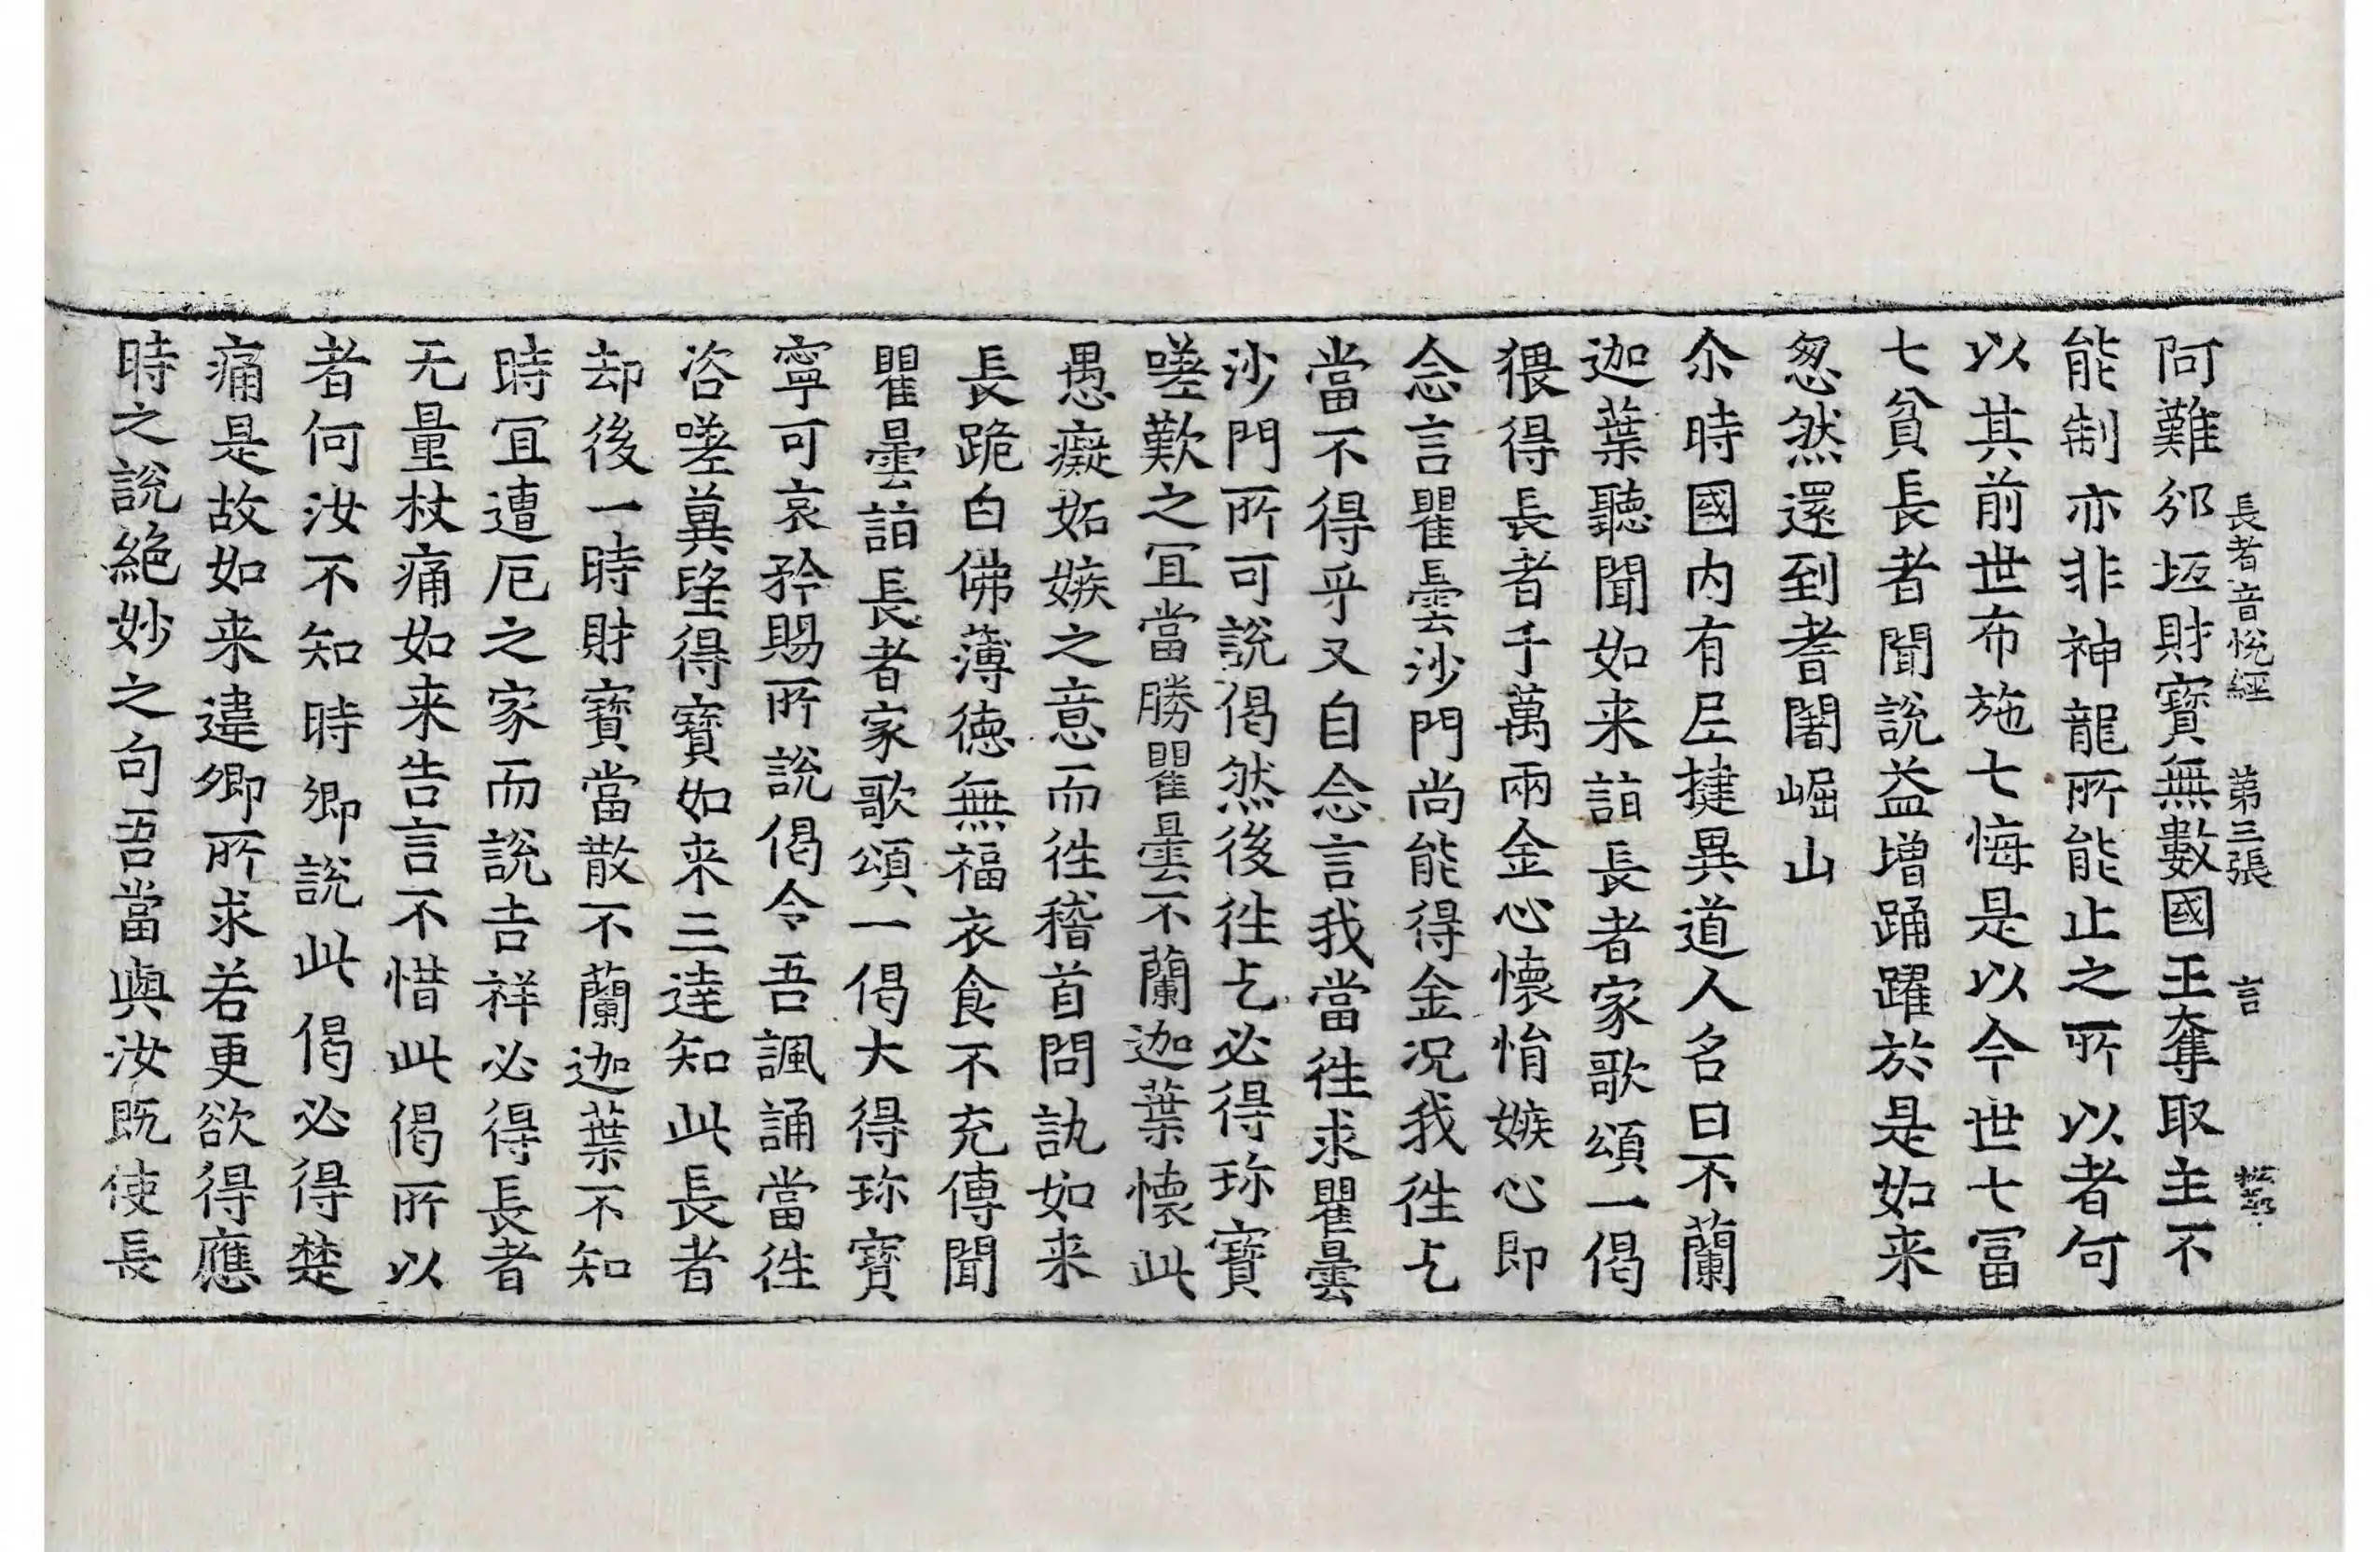 長者音悅經 第三張 言
阿難邠坻財寶無數國王奪取主不
能制亦非神龍所能止之所以者何
以其前世布施七悔是以今世七冨
七貧長者聞說益增踊躍於是如来
忽然還到耆闍崛山
尒時國内有尼揵異道人名曰不蘭
迦葉聽聞如来詣長者家歌頌一偈
猥得長者千萬兩金心懷悁嫉心即
念言瞿曇沙門尚能得金况我徃乞
當不得乎又自念言我當徃求瞿曇
沙門所可說偈然後徃乞必得珎寶
嗟歎之冝當勝瞿曇不蘭迦葉懷此
愚癡妬嫉之意而徃稽首問訊如来
長跪白佛薄德無福衣食不充傳聞
瞿曇詣長者家歌頌一偈大得珎寶
寧可哀矜賜所說偈令吾諷誦當徃
咨嗟兾望得寶如来三達知此長者
却後一時財寶當散不蘭迦葉不知
時冝遭厄之家而說吉祥必得長者
无量杖痛如来告言不惜此偈所以
者何汝不知時卿說此偈必得楚
痛是故如来違卿所求若更欲得應
時之說絶妙之句吾當與汝既使長